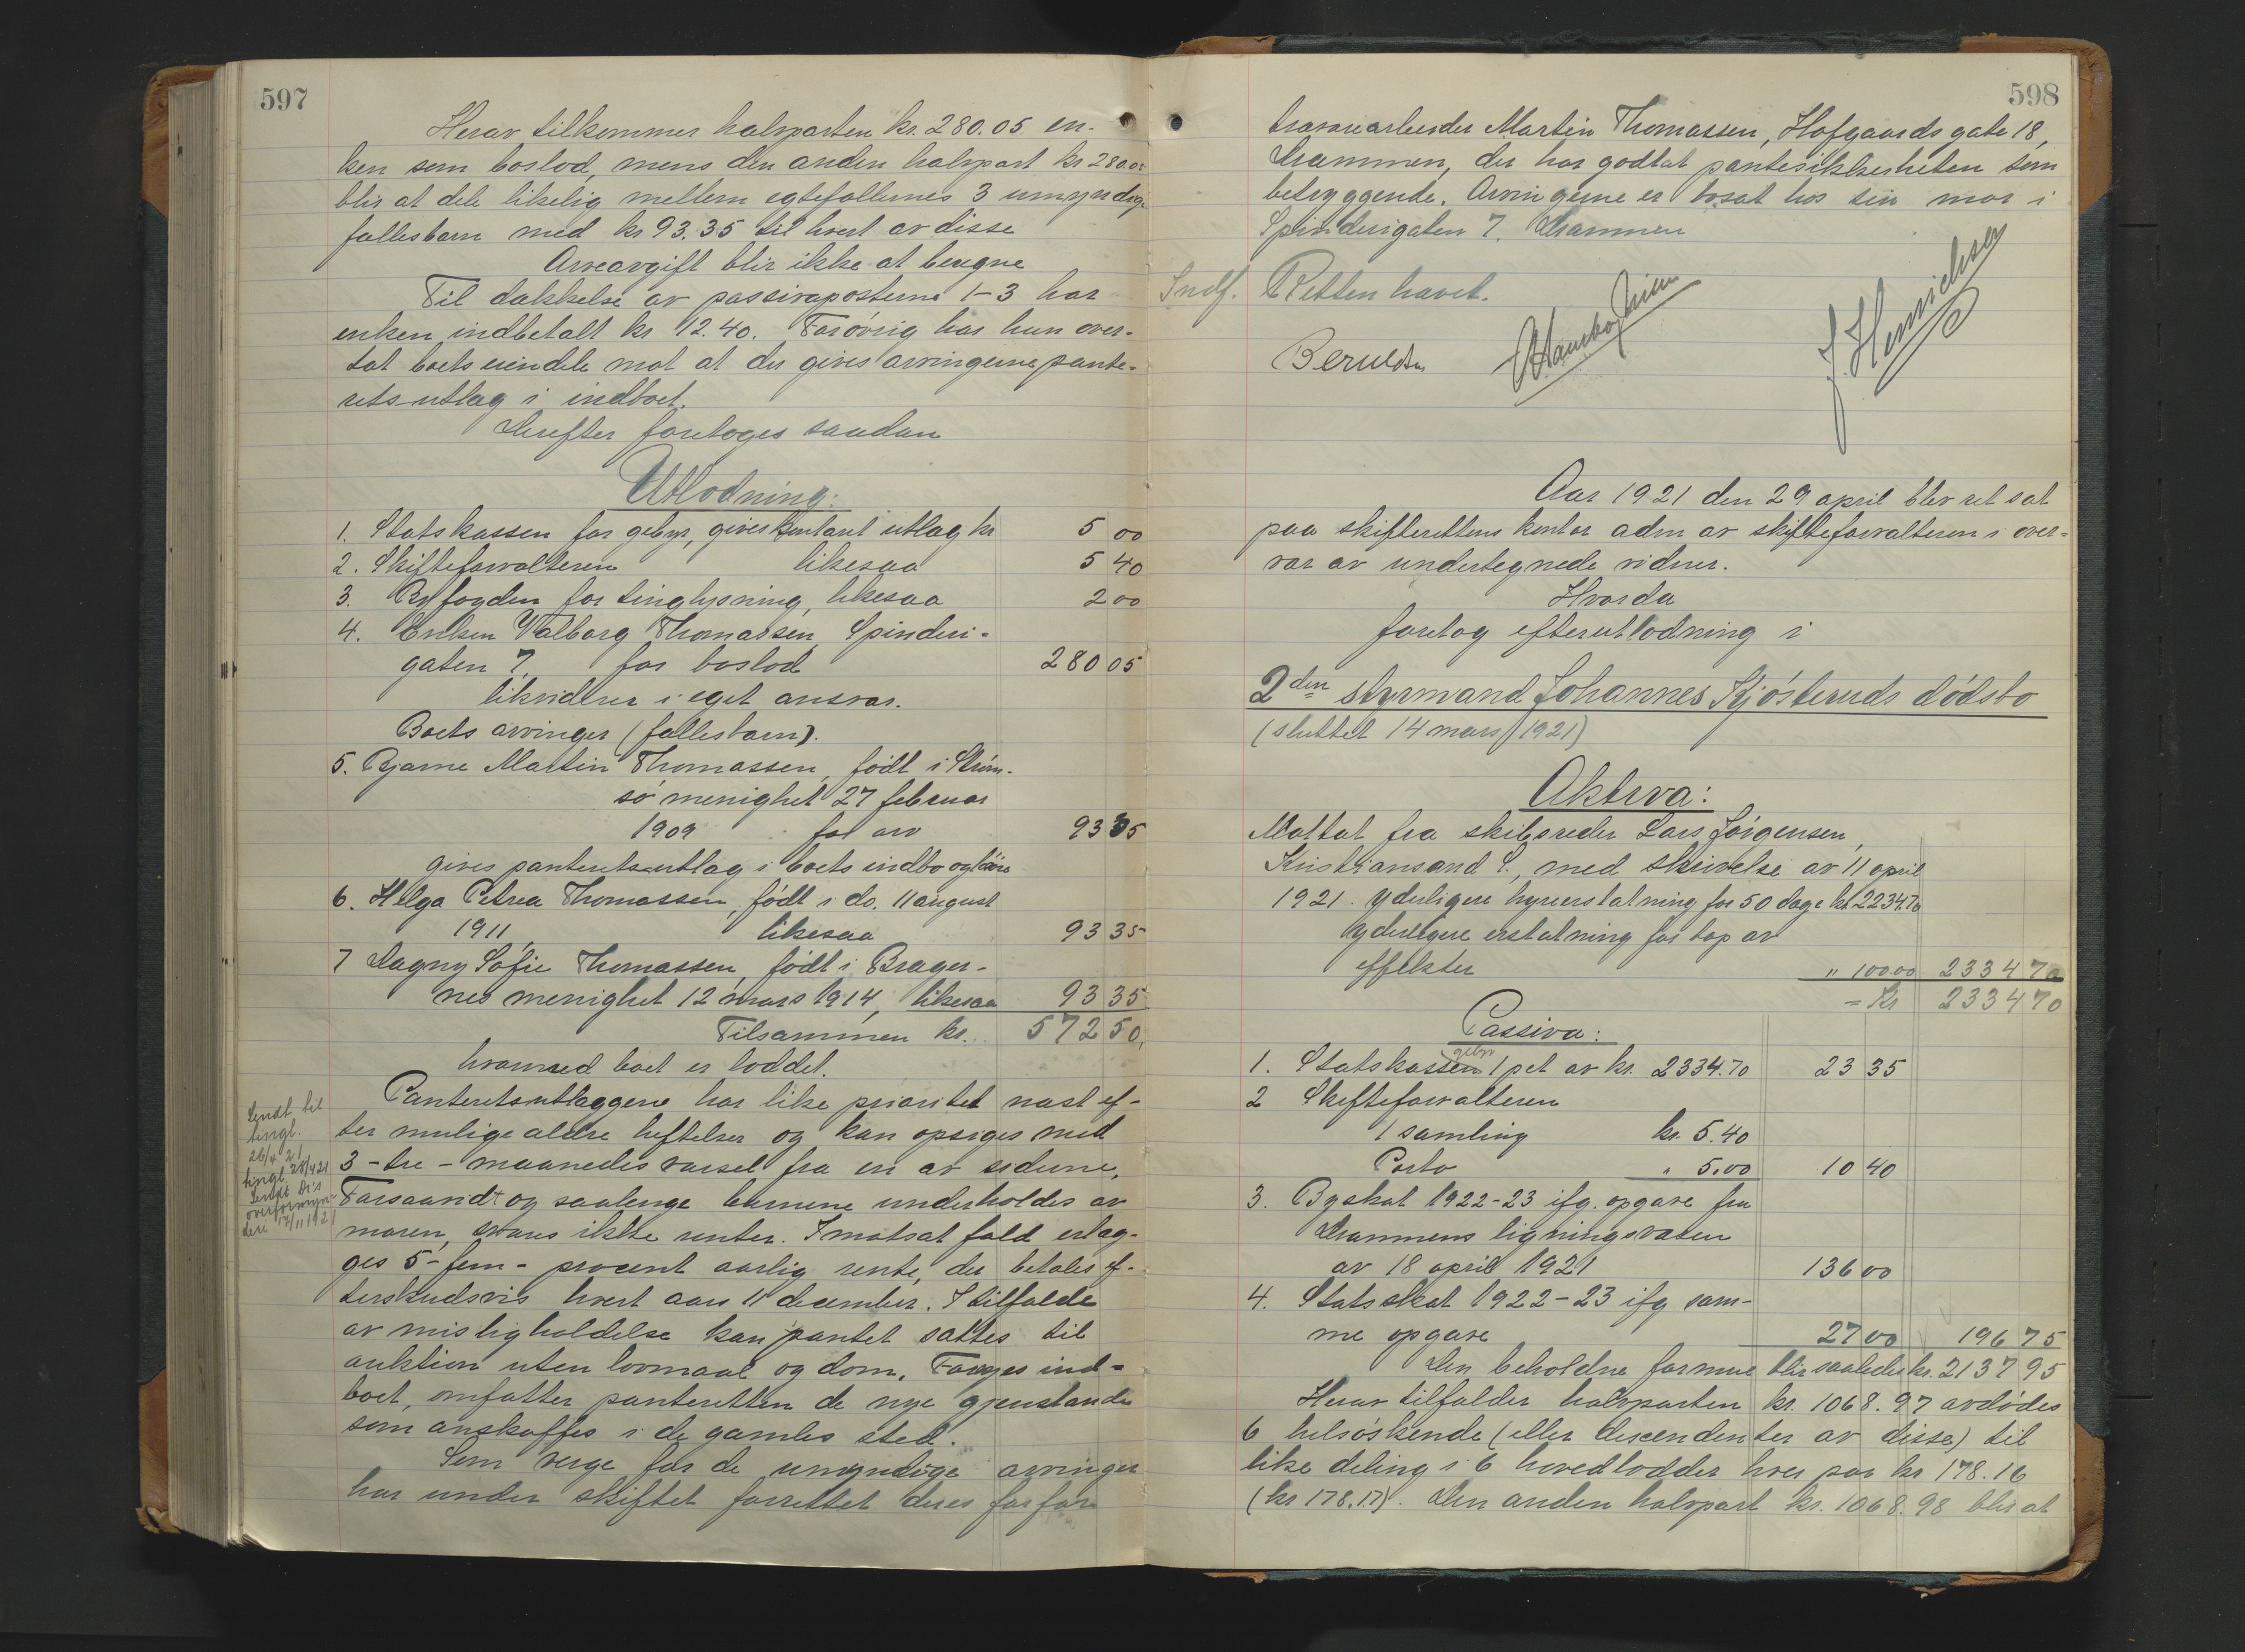 597
Herav tilkommer halvparten kr. 280.05 en-
ken som boslod, mens den anden halvpart kr 280.05
blir at dele likelig mellem egtefællernes 3 umyndige
fællesbarn med kr 93.35 til hvert av disse
Arveavgift blir ikke at beregne
Til dækkelse av passivaposterne 1-3 har
enken indbetalt kr 12.40. Forøvrig har hun over-
tat boets eiendele mot at der gives arvingerne pante-
retsutlæg i indboet.
Derefter foretoges saadan
Utlodning:
1. Statskassen for gebyr, gives kontant utlæg kr 5 00
2. Skifteforvalteren likesaa 5 40
3. Byfogden for tinglysning, likesaa 2 00
4. Enken Valborg Thomassen, Spinderi-
gaten 7, for boslod 280 05
likviderer i eget ansvar.
Boets arvinger (fællesbarn).
5. Bjarne Martin Thomassen, født i Strøm-
sø menighet 27 februar
1909 for arv 93 35
gives panteretsutlæg i boets indbo og løsøre
6. Helga Petrea Thomassen, født i do. 11 august
1911 likesaa 93 35
7 Dagny Sofie Thomassen, født i Brager-
nes menighet 12 mars 1914, likesaa 93 35
Tilsammen kr. 572 50,
hvormed boet er loddet.
Panteretsutlæggene har like prioritet næst ef-
ter mulige ældre heftelser og kan opsiges med
3 - tre - maanedes varsel fra en av siderne.
Forsaavidt og saalenge barnene underholdes av
moren, svares ikke renter. I motsat fald erlæg-
ges 5 - fem - procent aarlig rente, der betales ef-
terskudsvis hvert aars 11 december. I tilfælde
av misligholdelse kan pantet sættes til
auktion uten lovmaal og dom. Forøges ind-
boet, omfatter panteretten de nye gjenstande
som anskaffes i de gamles sted.
Som verge for de umyndige arvinger
har under skiftet forrettet deres farfar
Sendt til
tingl.
26/4 21
tingl. 28/4 21
Sendt Drs
overformyn-
deri 17/11 1921
598
travarearbeider Martin Thomassen, Hofgaards gate 18,
Drammen, der har godtat pantesikkerheten som
betryggende. Arvingerne er bosat hos sin mor i
Spinderigaten 7. Drammen
Retten hævet.
J. Henrichsen
Aar 1921 den 29 april blev ret sat
paa skifterettens kontor adm av skifteforvalteren i over-
vær av undertegnede vidner.
Hvorda
foretog efterutlodning i
2den styrmand Johannes Kjøsteruds dødsbo
(sluttet 14 mars 1921)
Aktiva:
Mottat fra skibsreder Lars Jørgensen,
Kristiansand S., med skrivelse av 11 april
1921. yderligere hyreerstatning for 50 dage kr. 2234.70
yderligere erstatning for tap av
effekter " 100.00 2334 70
= Kr 2334 70
Passiva:
1. Statskassen gebyr 1 pct av kr. 2334.70 23 35
2 Skifteforvalteren
1 samling kr. 5.40
Porto " 5.00 10 40
3. Byskat 1922-23 ifg. opgave fra
Drammens ligningsvæsen
av 18 april 1921 136 00
4. Statsskat 1922-23 ifg sam-
me opgave 27 00 196 75
Den beholdne formue blir saaledes kr. 2137 95
Herav tilfalder halvparten kr. 1068.97 avdødes
6 helsøskende (eller descendenter av disse) til
like deling i 6 hovedlodder hver paa kr 178.16
(kr 178.17). Den anden halvpart kr. 1068.98 blir at